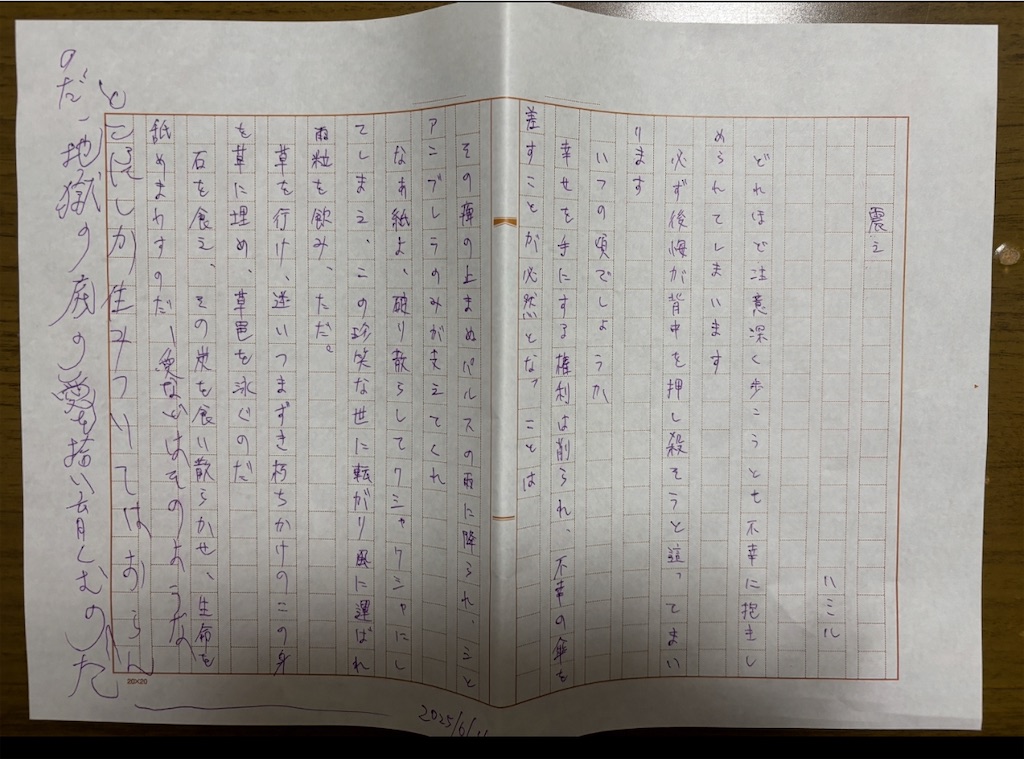 震え
ハミル
どれほど注意深く歩こうとも不幸に抱きし
められてしまいます
必ず後悔が背中を押し殺そうと這ってまい
ります
いつの頃でしょうか
幸せを手にする権利は削られ、不幸の傘を
差すことが必然となったことは
その薄の止まぬパルスの雨に降られ、シと
アコブシラのみが支えてくれ
なあ紙よ、破り散らしてクシャクシャにし
てしまえ、この珍笑な世に転がり風に運ばれ
雨粒を飲み、ただ。
草を行け、迷いつまずき朽ちかけのこの身
を草に埋め、草邑を泳ぐのだ
石を食え、その炭を食い散らかせ、生命を
舐めまわすのだ、愛などはそのような
ところにしか生みつけてはおらん
のだ、地獄の底の愛を拾い育しむのだ
20×20
2025/6/11